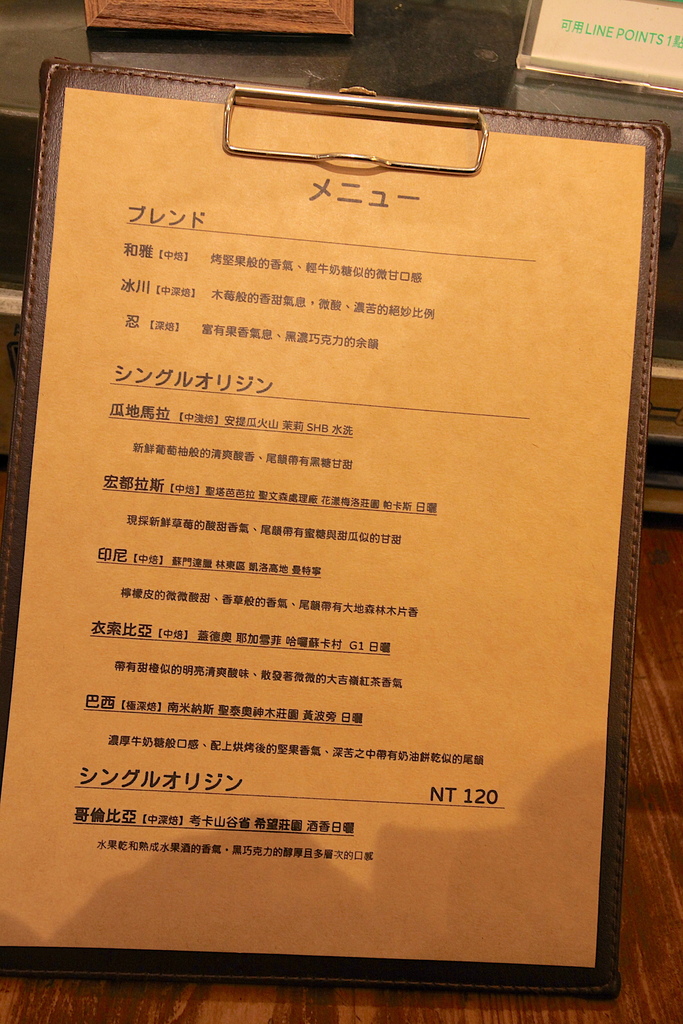 可用LINE POINTS 1點
メニュー
ブレンド
和雅【中焙】 烤堅果般的香氣、輕牛奶糖似的微甘口感
冰川【中深焙】 木莓般的香甜氣息，微酸、濃苦的絕妙比例
忍【深焙】 富有果香氣息、黑濃巧克力的余韻
シングルオリジン
瓜地馬拉【中淺焙】安提瓜火山 茉莉 SHB 水洗
新鮮葡萄柚般的清爽酸香、尾韻帶有黑糖甘甜
宏都拉斯【中焙】聖塔芭芭拉 聖文森處理廠 花漾梅洛莊園 帕卡斯 日曬
現採新鮮草莓的酸甜香氣、尾韻帶有蜜糖與甜瓜似的甘甜
印尼【中焙】 蘇門達臘 林東區 凱洛高地 曼特寧
檸檬皮的微微酸甜、香草般的香氣、尾韻帶有大地森林木片香
衣索比亞【中焙】 蓋德奧 耶加雪菲 哈囉蘇卡村 G1 日曬
帶有甜橙似的明亮清爽酸味、散發著微微的大吉嶺紅茶香氣
巴西【極深焙】南米納斯 聖泰奧神木莊園 黃波旁 日曬
濃厚牛奶糖般口感、配上烘烤後的堅果香氣、深苦之中帶有奶油餅乾似的尾韻
シングルオリジン NT 120
哥倫比亞【中深焙】考卡山谷省 希望莊園 酒香日曬
水果乾和熟成水果酒的香氣，黑巧克力的醇厚且多層次的口感